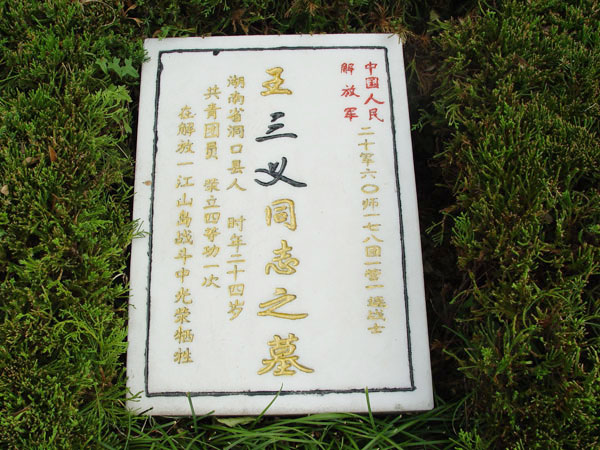 中国人民
解放军
二十军六〇师一七八团一营一连战士
王三义同志之墓
湖南省洞口县人 时年二十四岁
共青团员 荣立四等功一次
在解放一江山岛战斗中光荣牺牲